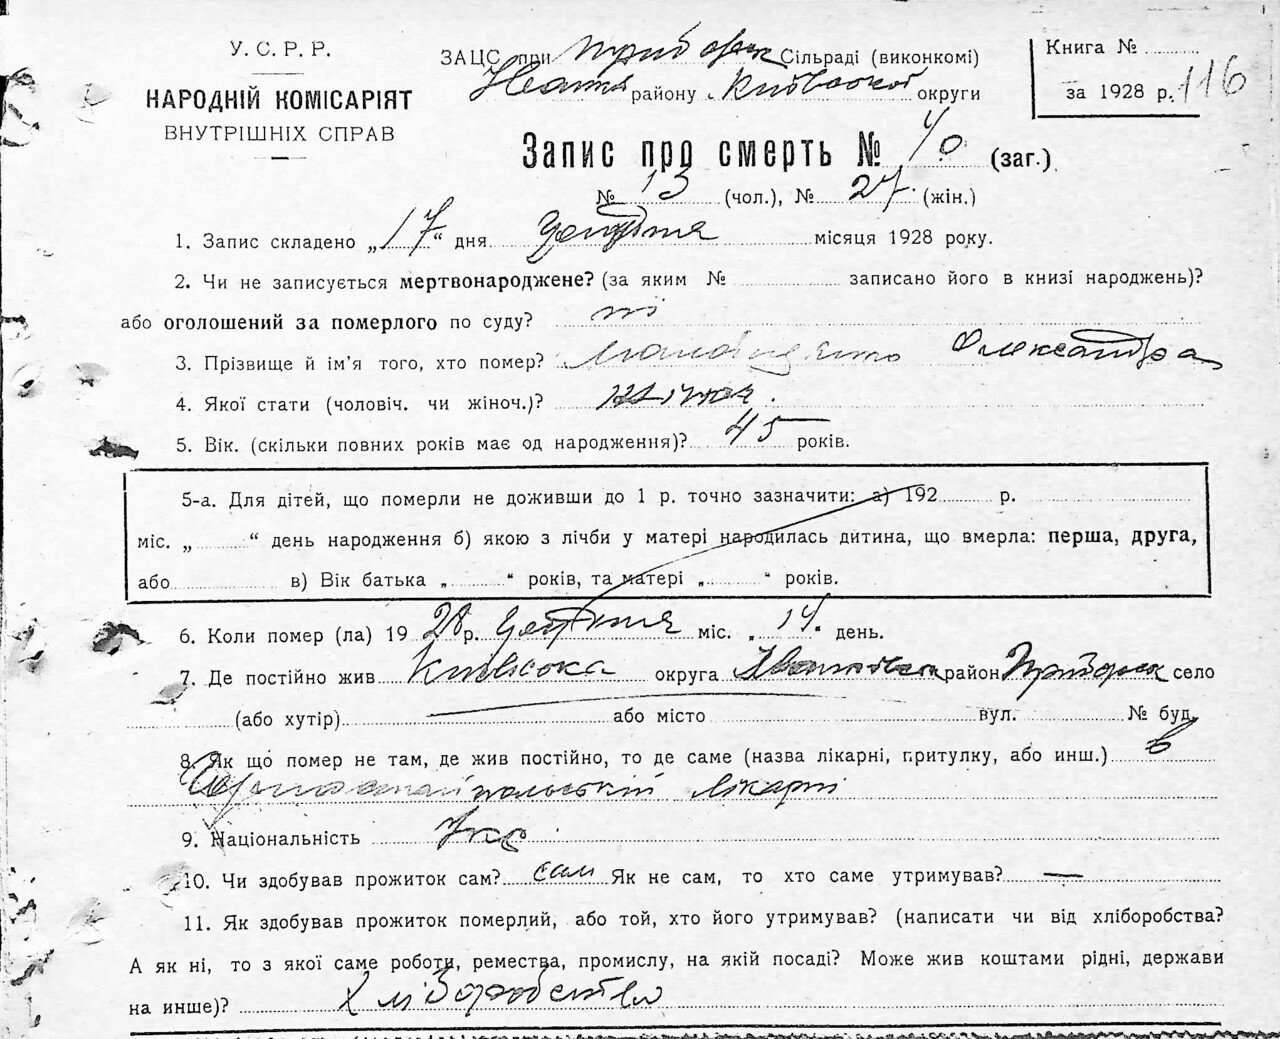 У. С. Р. Р.
НАРОДНІЙ КОМІСАРІЯТ
ВНУТРІШНІХ СПРАВ
ЗАЦС при Сільраді (виконкомі)
району Київської округи
Книга №
за 1928 р. 116
Запис про смерть № 40 (заг.)
№ 13 (чол.), № 27 (жін.)
1. Запис складено „17“ дня місяця 1928 року.
2. Чи не записується мертвонароджене? (за яким № записано його в книзі народжень)?
або оголошений за померлого по суду? ні
3. Прізвище й ім'я того, хто помер? Олександра
4. Якої стати (чоловіч. чи жіноч.)? жіноч.
5. Вік. (скільки повних років має од народження)? 45 років.
5-а. Для дітей, що померли не доживши до 1 р. точно зазначити: а) 192 р.
міс. „ “ день народження б) якою з лічби у матері народилась дитина, що вмерла: перша, друга,
або в) Вік батька „ “ років, та матері „ “ років.
6. Коли помер (ла) 1928 р. міс. „14“ день.
7. Де постійно жив Київська округа район село
(або хутір) або місто вул. № буд.
8. Як що помер не там, де жив постійно, то де саме (назва лікарні, притулку, або инш.) в
лікарні
9. Національність Укр
10. Чи здобував прожиток сам? сам Як не сам, то хто саме утримував? —
11. Як здобував прожиток померлий, або той, хто його утримував? (написати чи від хліборобства?
А як ні, то з якої саме роботи, ремества, промислу, на якій посаді? Може жив коштами рідні, держави
на инше)? Хліборобство